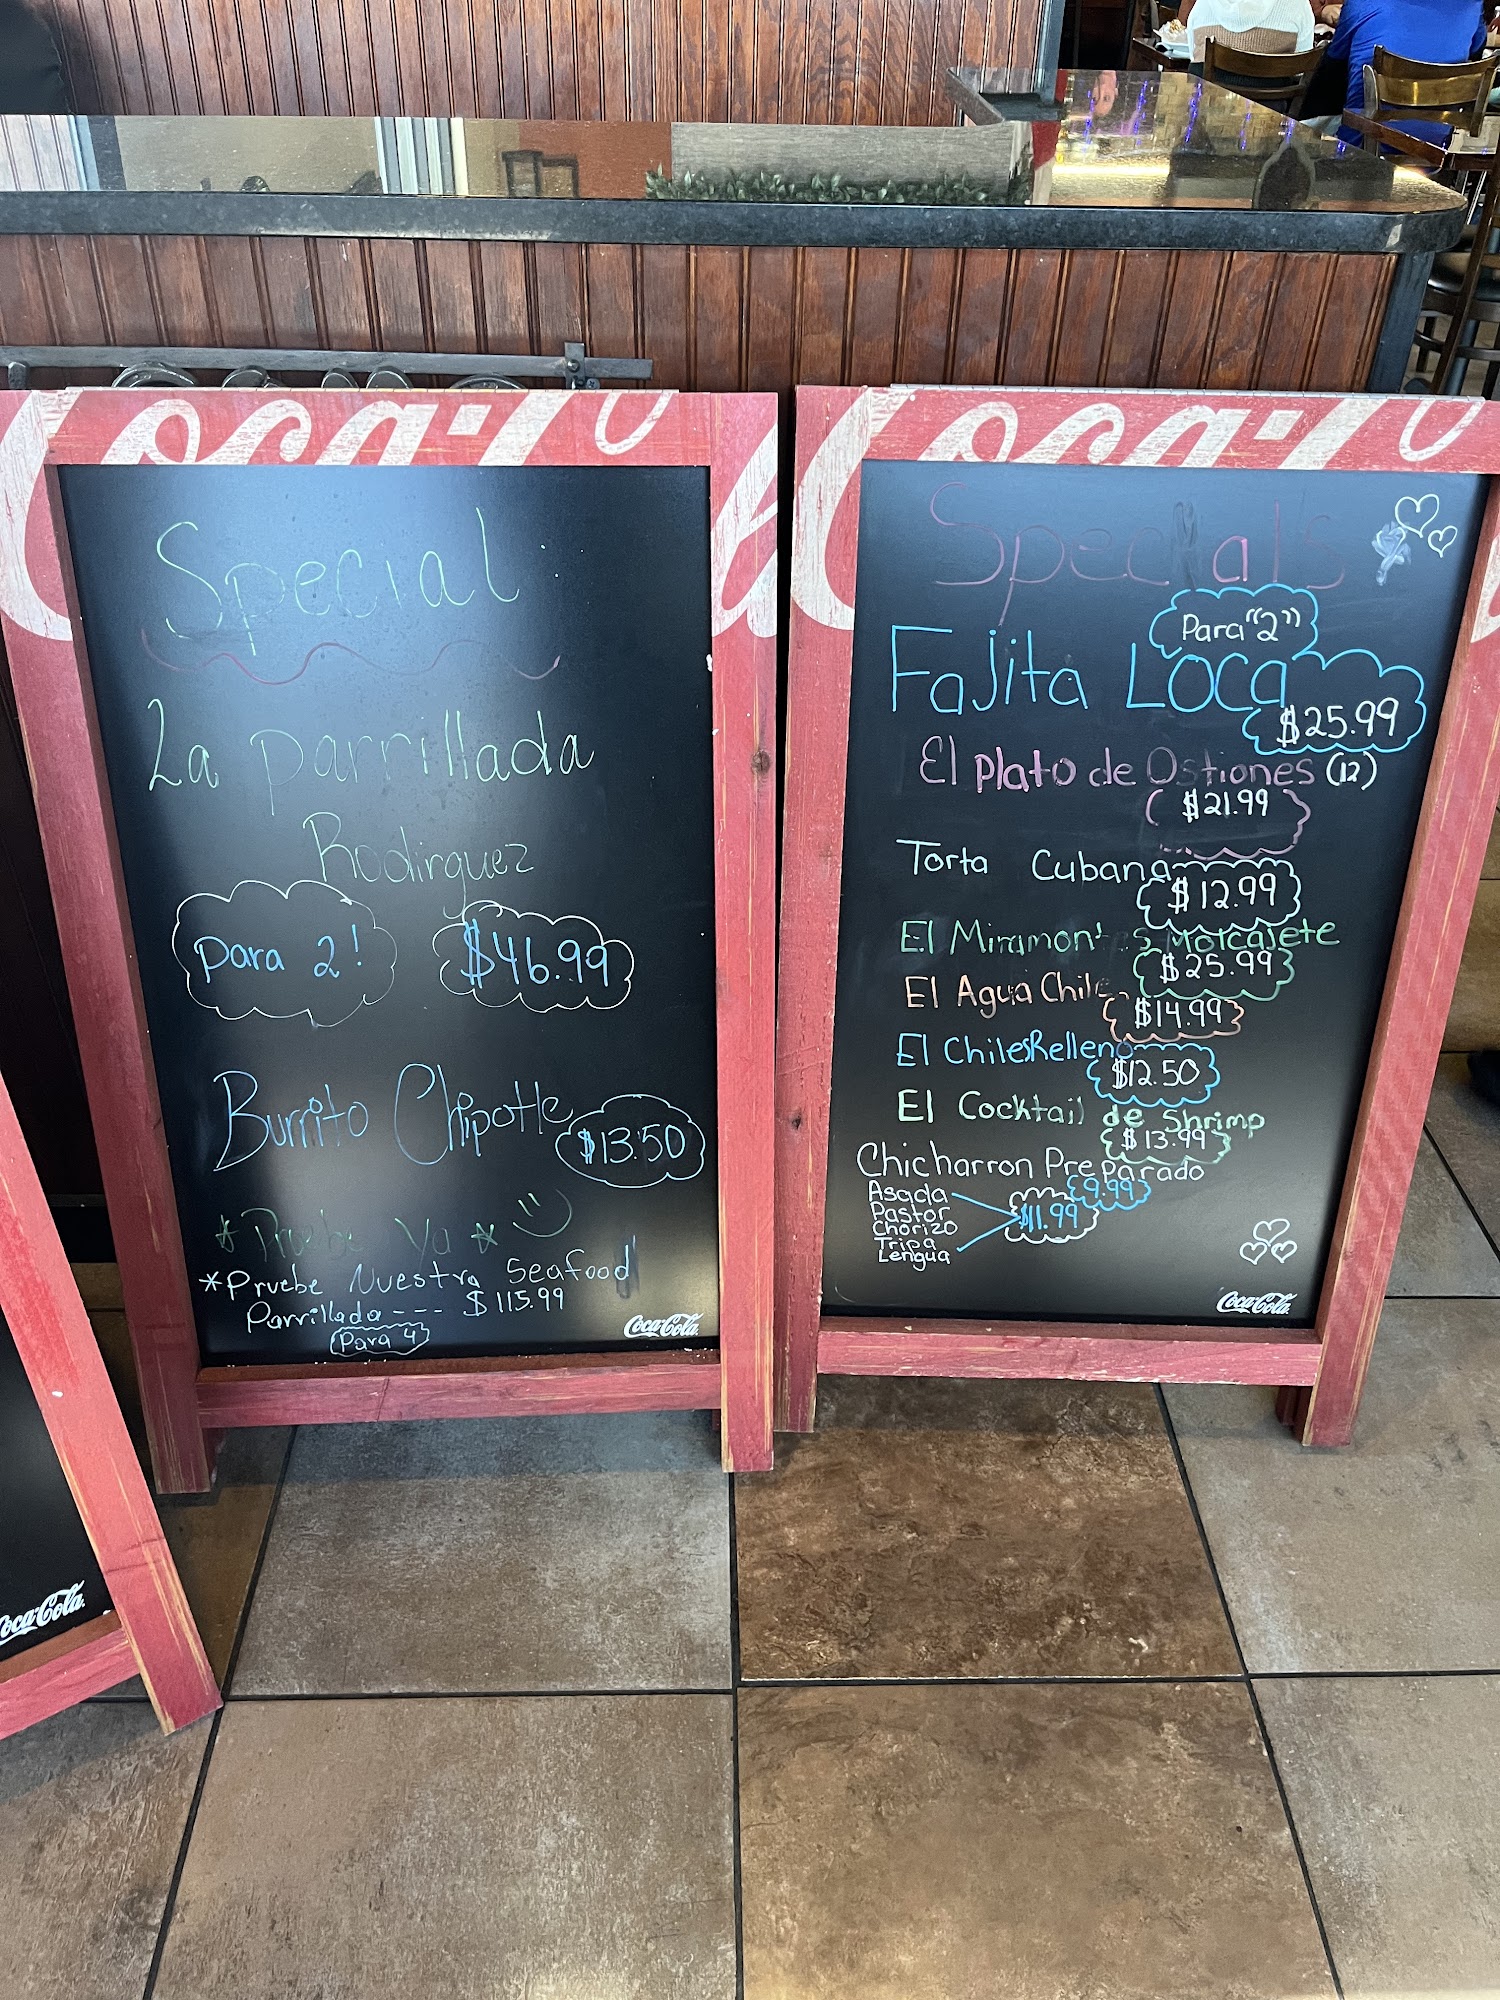 Special
La parrillada
Rodirguez
para 2!
$46.99
Burrito Chipotle
$13.50
*Pruebe Ya*
*Pruebe Nuestra Seafood
Parrillada---- $115.99
Para 4
Coca-Cola
Specials
Para "2"
Fajita Loca
$25.99
El plato de Ostiones (12)
$21.99
Torta Cubana
$12.99
El Miramontes Molcajete
$25.99
El Agua Chile
$14.99
El ChilesRelleno
$12.50
El Cocktail de Shrimp
$13.99
Chicharron Preparado
9.99
Asada
Pastor
Chorizo
Tripa
Lengua
$11.99
Coca-Cola
Coca-Cola